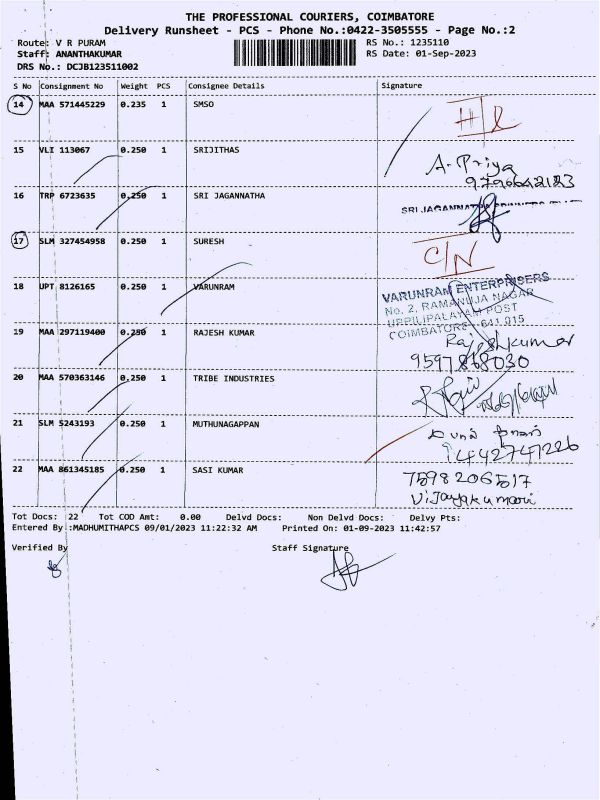 THE PROFESSIONAL COURIERS, COIMBATORE
Delivery Runsheet - PCS - Phone No.:0422-3505555 - Page No.:2
Route: V R PURAM
RS No.: 1235110
Staff: ANANTHAKUMAR
RS Date: 01-Sep-2023
DRS No.: DCJB123511002
S No Consignment No Weight PCS Consignee Details Signature
14 MAA 571445229 0.235 1 SMSO
15 VLI 113067 0.250 1 SRIJITHAS A. Priya
9796642123
16 TRP 6723635 0.250 1 SRI JAGANNATHA SRI JAGANNATHA
17 SLM 327454958 0.250 1 SURESH C/N
18 UPT 8126165 0.250 1 VARUNRAM VARUNRAM ENTERPRISERS
No. 2, RAMANUJA NAGAR
UPPILIPALAYAM POST
COIMBATORE - 641 015
19 MAA 297119400 0.250 1 RAJESH KUMAR Rajeshkumar
9597868030
20 MAA 570363146 0.250 1 TRIBE INDUSTRIES
21 SLM 5243193 0.250 1 MUTHUNAGAPPAN
9442741226
22 MAA 861345185 0.250 1 SASI KUMAR 7598206517
Vijayakumari
Tot Docs: 22 Tot COD Amt: 0.00 Delvd Docs: Non Delvd Docs: Delvy Pts:
Entered By :MADHUMITHAPCS 09/01/2023 11:22:32 AM Printed On: 01-09-2023 11:42:57
Verified By Staff Signature